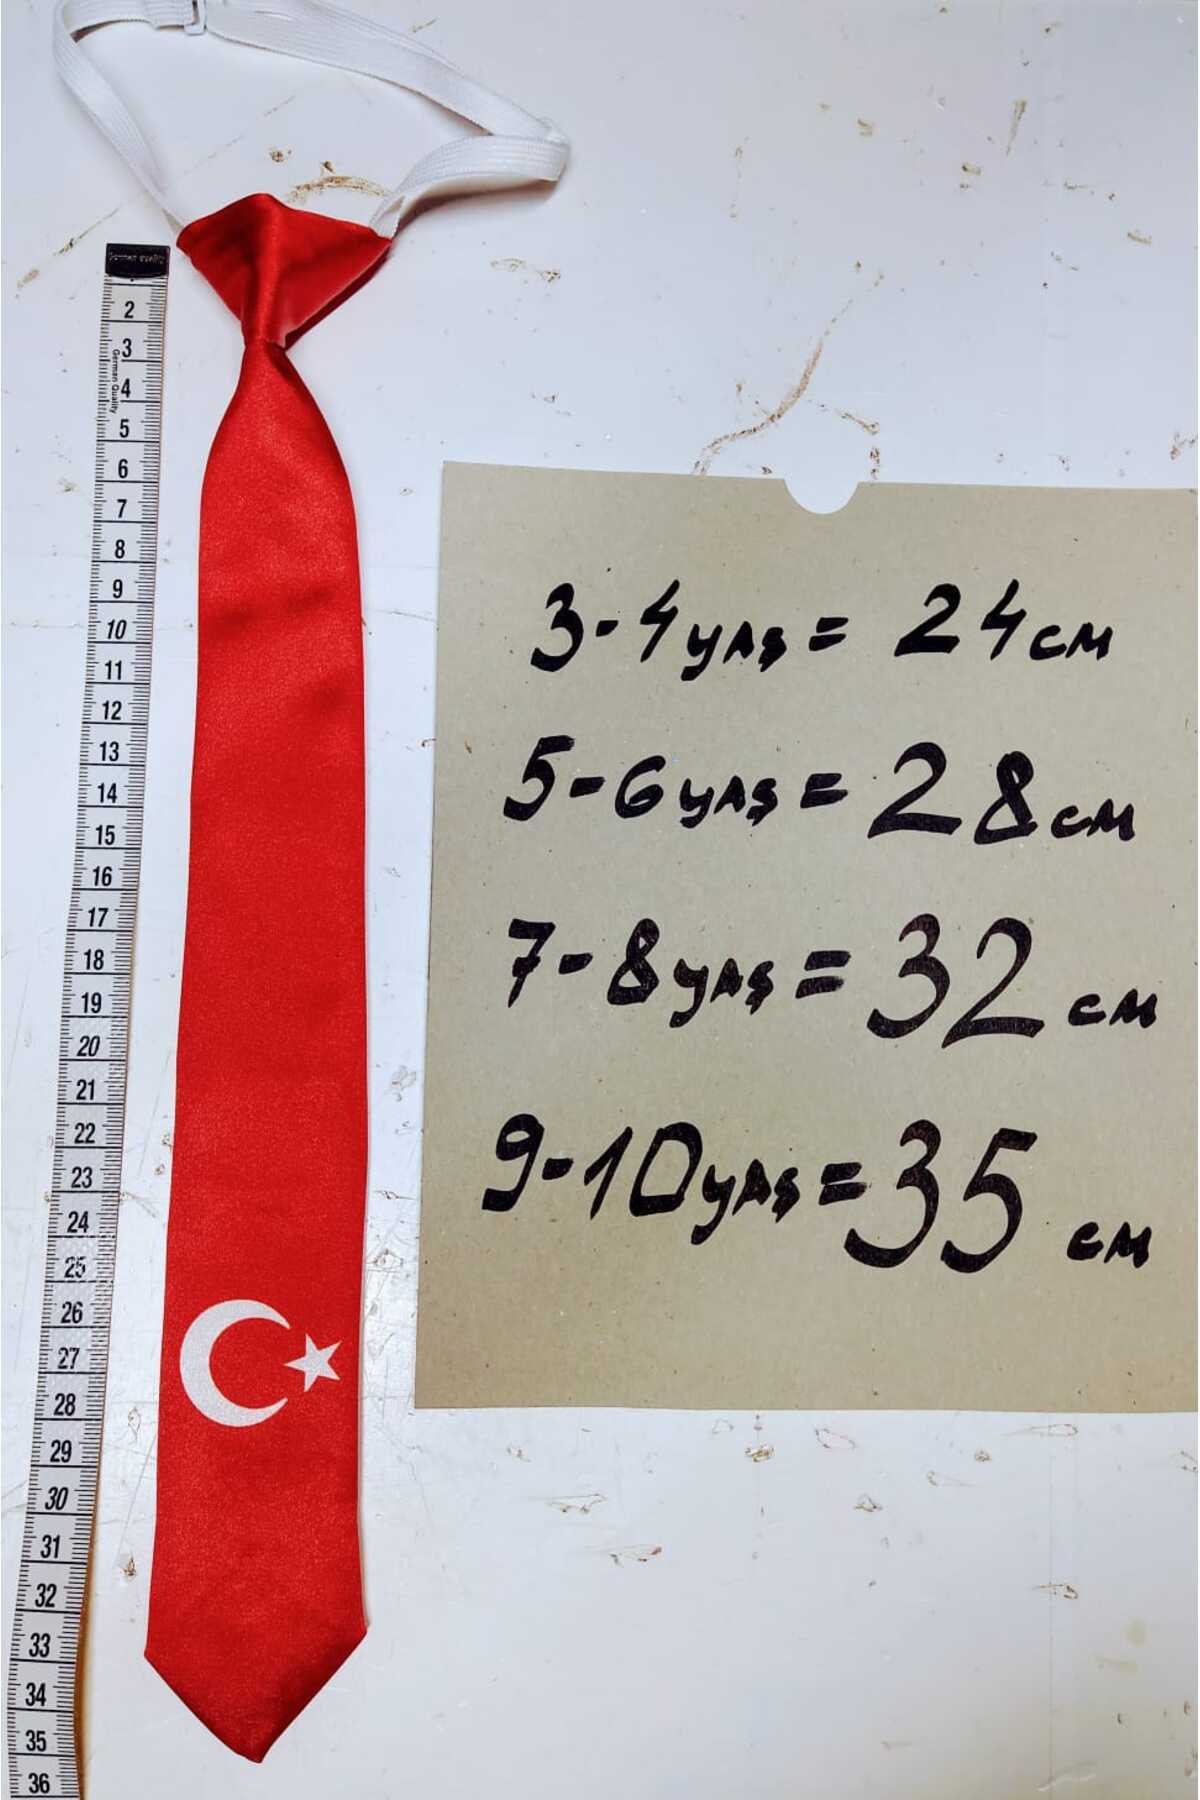 German quality
2
3
German Quality
4
5
6
7
8
9
10
11
12
13
14
15
16
17
18
19
20
21
22
23
24
25
26
27
28
29
30
31
32
33
34
35
36
3-4 yaş = 24 cm
5-6 yaş = 28 cm
7-8 yaş = 32 cm
9-10 yaş = 35 cm